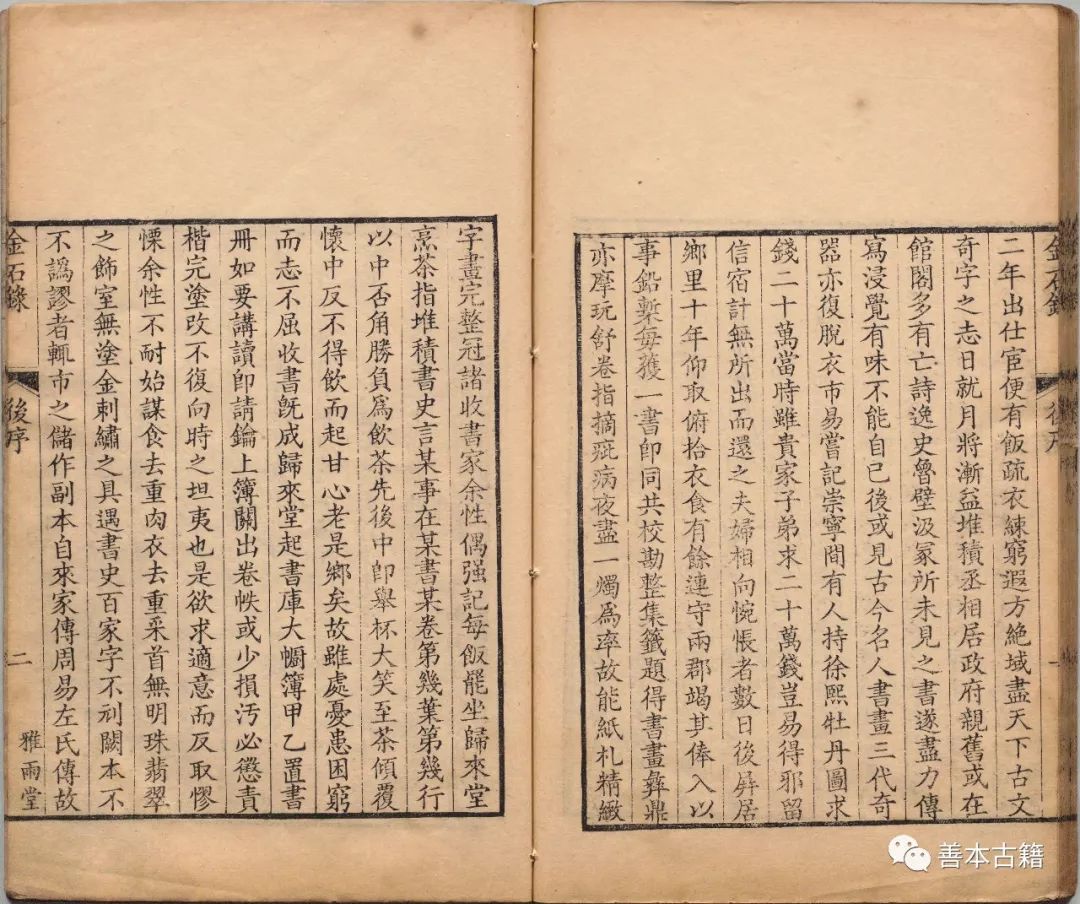 金石錄
後序
一
二年出仕宦便有飯疏衣練窮遐方絶域盡天下古文
奇字之志日就月將漸益堆積丞相居政府親舊或在
館閣多有亡詩逸史魯壁汲冢所未見之書遂盡力傳
寫浸覺有味不能自已後或見古今名人書畫三代奇
器亦復脫衣市易嘗記崇寧間有人持徐熙牡丹圖求
錢二十萬當時雖貴家子弟求二十萬錢豈易得邪留
信宿計無所出而還之夫婦相向惋悵者數日後屏居
鄉里十年仰取俯拾衣食有餘連守兩郡竭其俸入以
事鉛槧每獲一書卽同共校勘整集籤題得書畫彝鼎
亦摩玩舒卷指摘疵病夜盡一燭爲率故能紙札精緻
字畫完整冠諸收書家余性偶强記每飯罷坐歸來堂
烹茶指堆積書史言某事在某書某卷第幾葉第幾行
以中否角勝負爲飲茶先後中卽舉杯大笑至茶傾覆
懷中反不得飲而起甘心老是鄉矣故雖處憂患困窮
而志不屈收書旣成歸來堂起書庫大櫥簿甲乙置書
冊如要講讀卽請鑰上簿關出卷帙或少損汚必懲責
楷完塗改不復向時之坦夷也是欲求適意而反取憀
慄余性不耐始謀食去重肉衣去重采首無明珠翡翠
之飾室無塗金刺繡之具遇書史百家字不刓闕本不
不譌謬者輒市之儲作副本自來家傳周易左氏傳故
金石錄
後序
二
雅雨堂
善本古籍